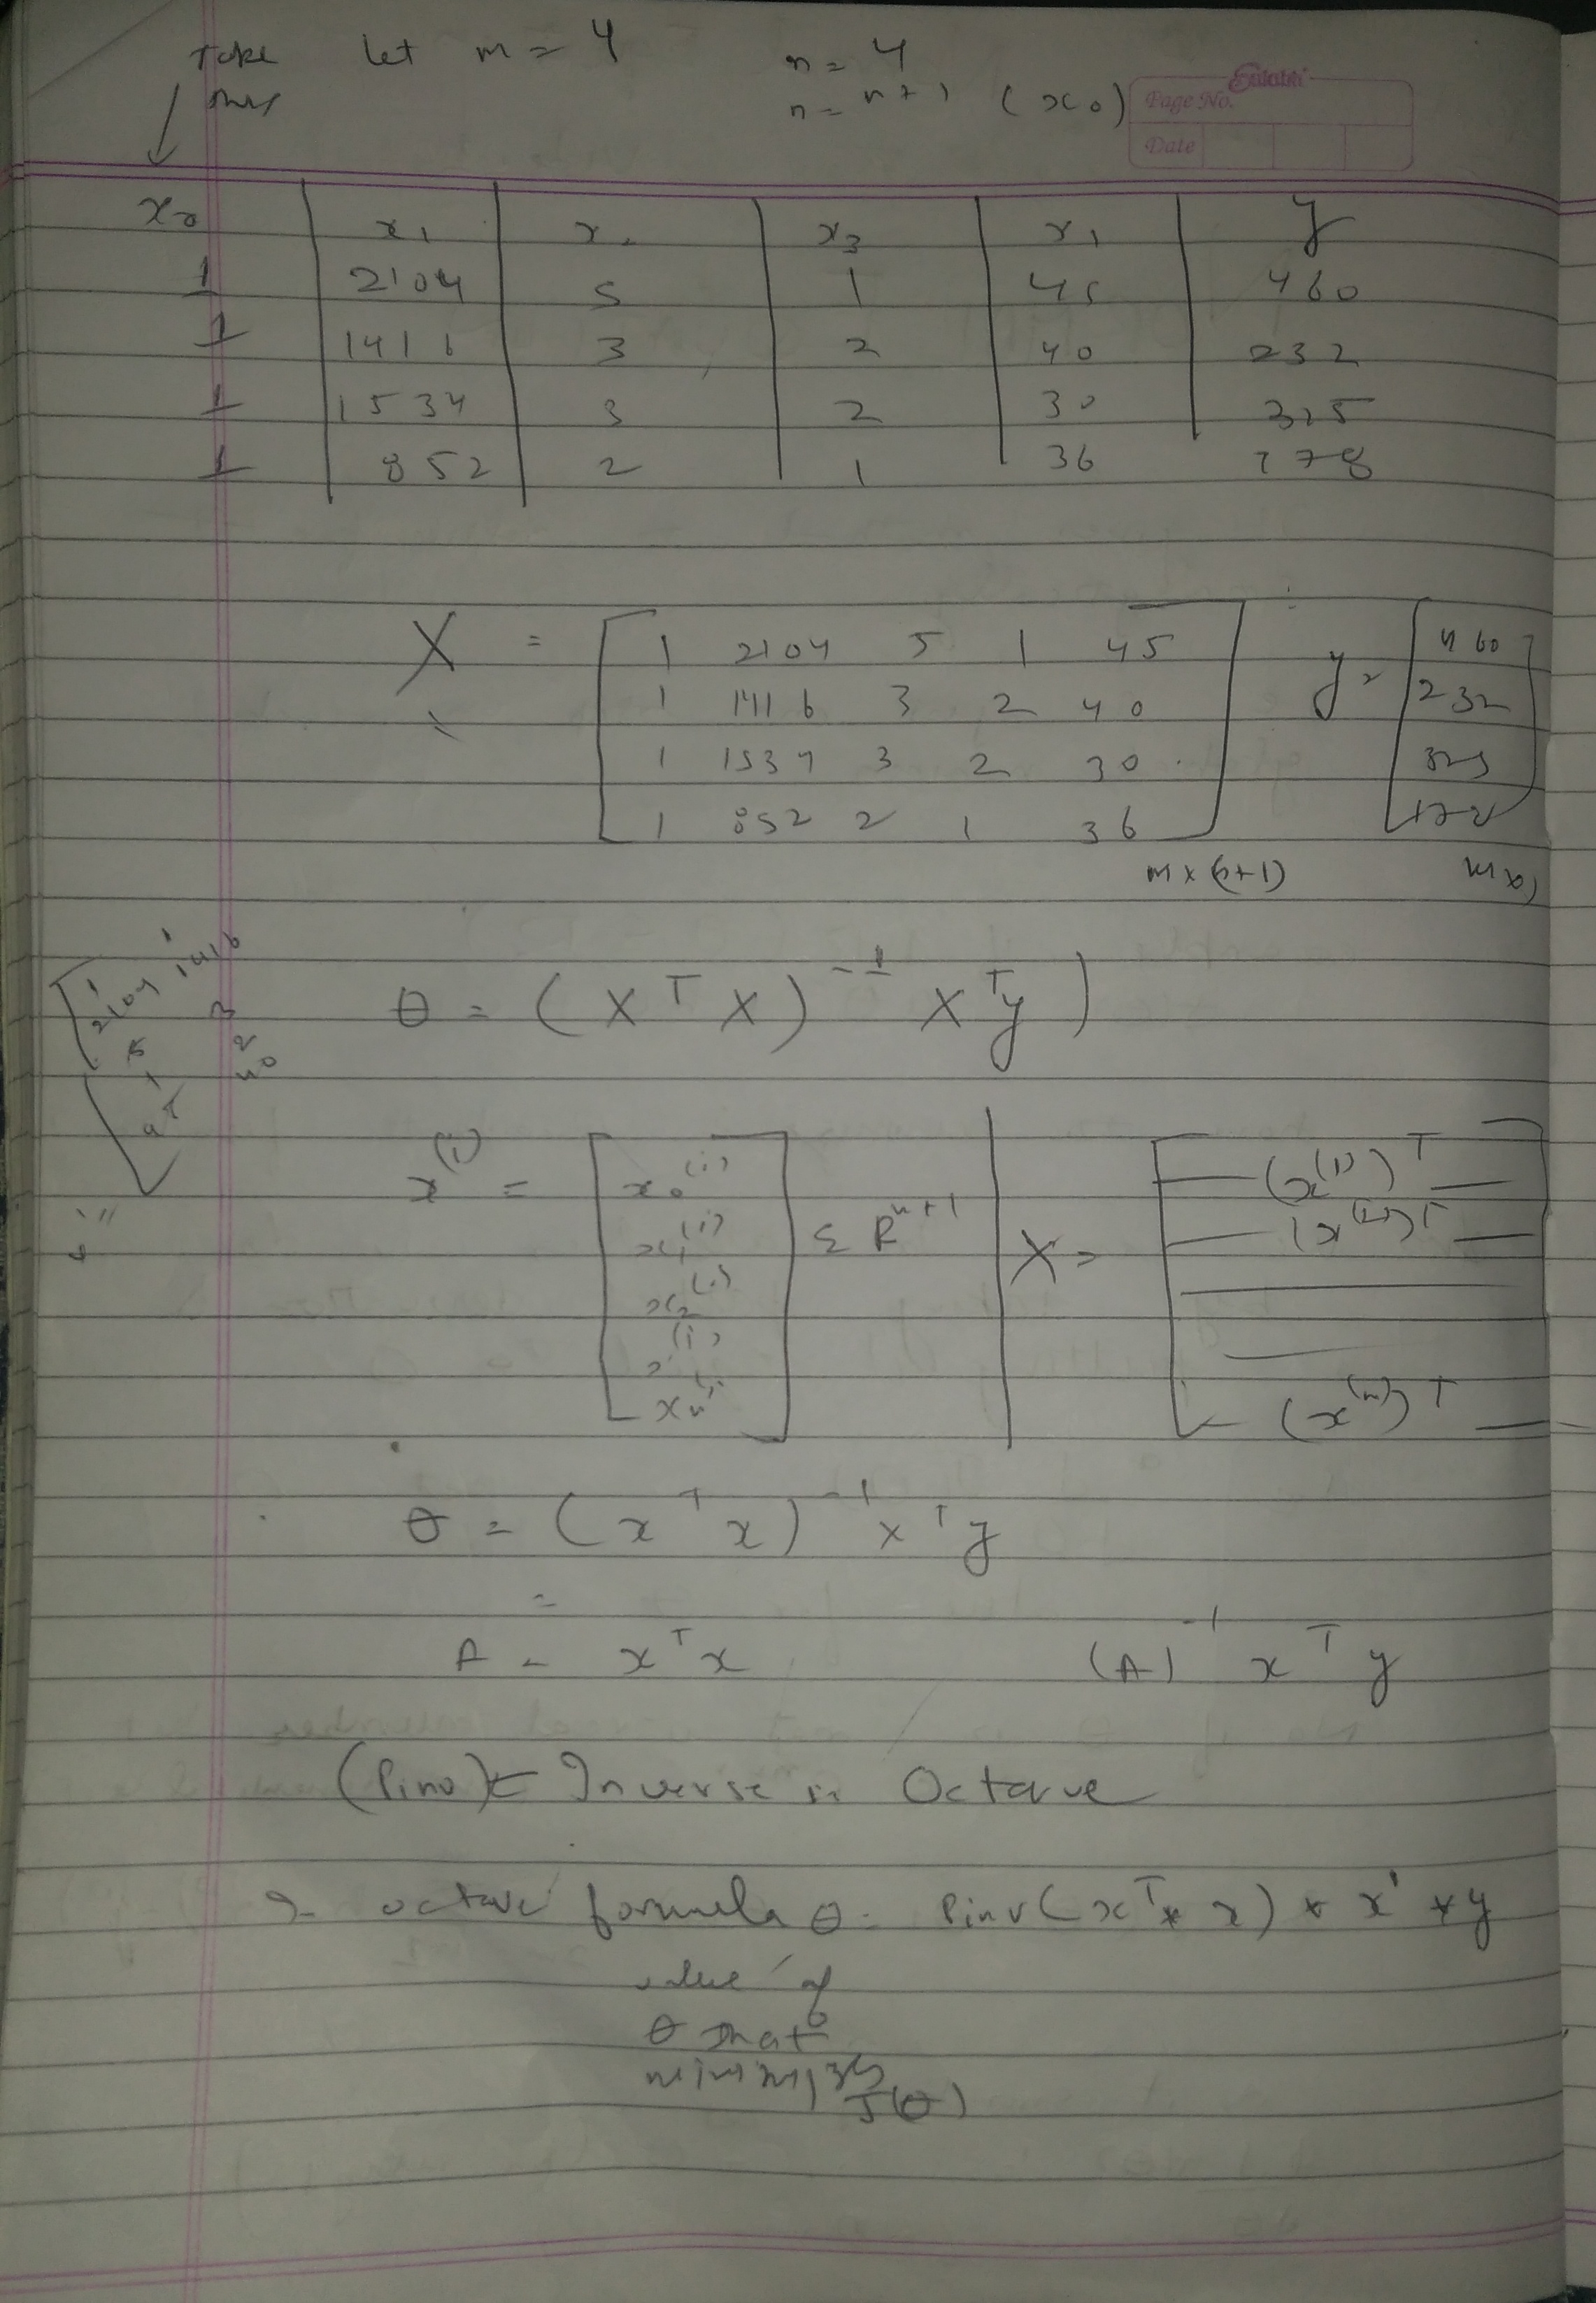 Take let m = 4 n = 4
this n = n+1 (x₀)
Eslabi
Page No.
Date
x₀ x₁ x₂ x₃ x₁ y
1 2104 5 1 45 460
1 1416 3 2 40 232
1 1534 3 2 30 315
1 852 2 1 36 178
X = [ 1 2104 5 1 45 ] y = [ 460 ]
1 1416 3 2 40 232
1 1534 3 2 30 315
1 852 2 1 36 178
m x (n+1) m x 1
1 1
2104 1416
5 3
1 2
45 40
θ = (X^T X)^-1 X^T y )
x^(i) = [ x₀^(i) ] Σ R^n+1 X = [ — (x^(1))^T — ]
x₁^(i) — (x^(2))^T —
x₂^(i)
x^(i)
xₙ^(i) — (x^(n))^T —
θ = (x^T x)^-1 x^T y
=
A = x^T x (A)^-1 x^T y
(Pinv) ← Inverse in Octave
octave formula θ = Pinv(x^T * x) * x' * y
value of
θ that
minimizes
J(θ)